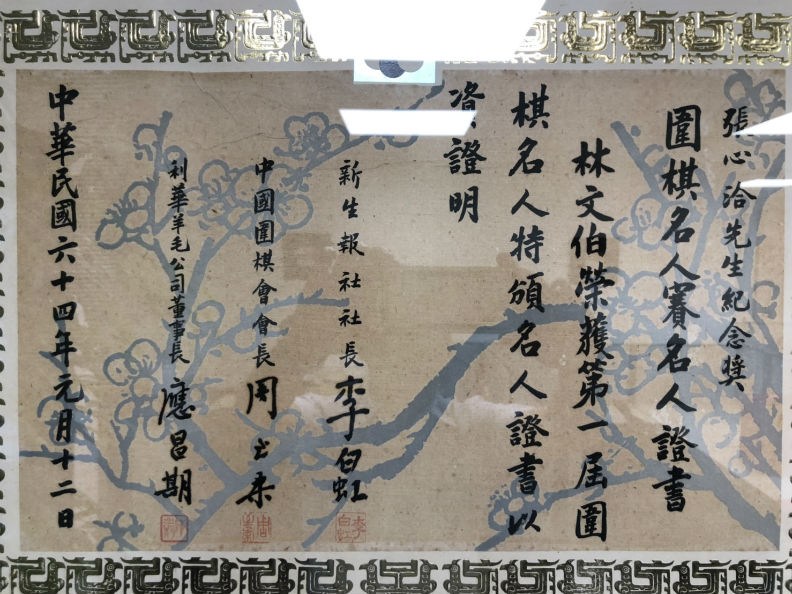 張心洽先生紀念獎
圍棋名人賽名人證書
林文伯榮獲第一屆圍
棋名人特頒名人證書以
資證明
新生報社社長 李白虹
中國圍棋會會長 周至柔
利華羊毛公司董事長 應昌期
中華民國六十四年元月十二日
李白虹